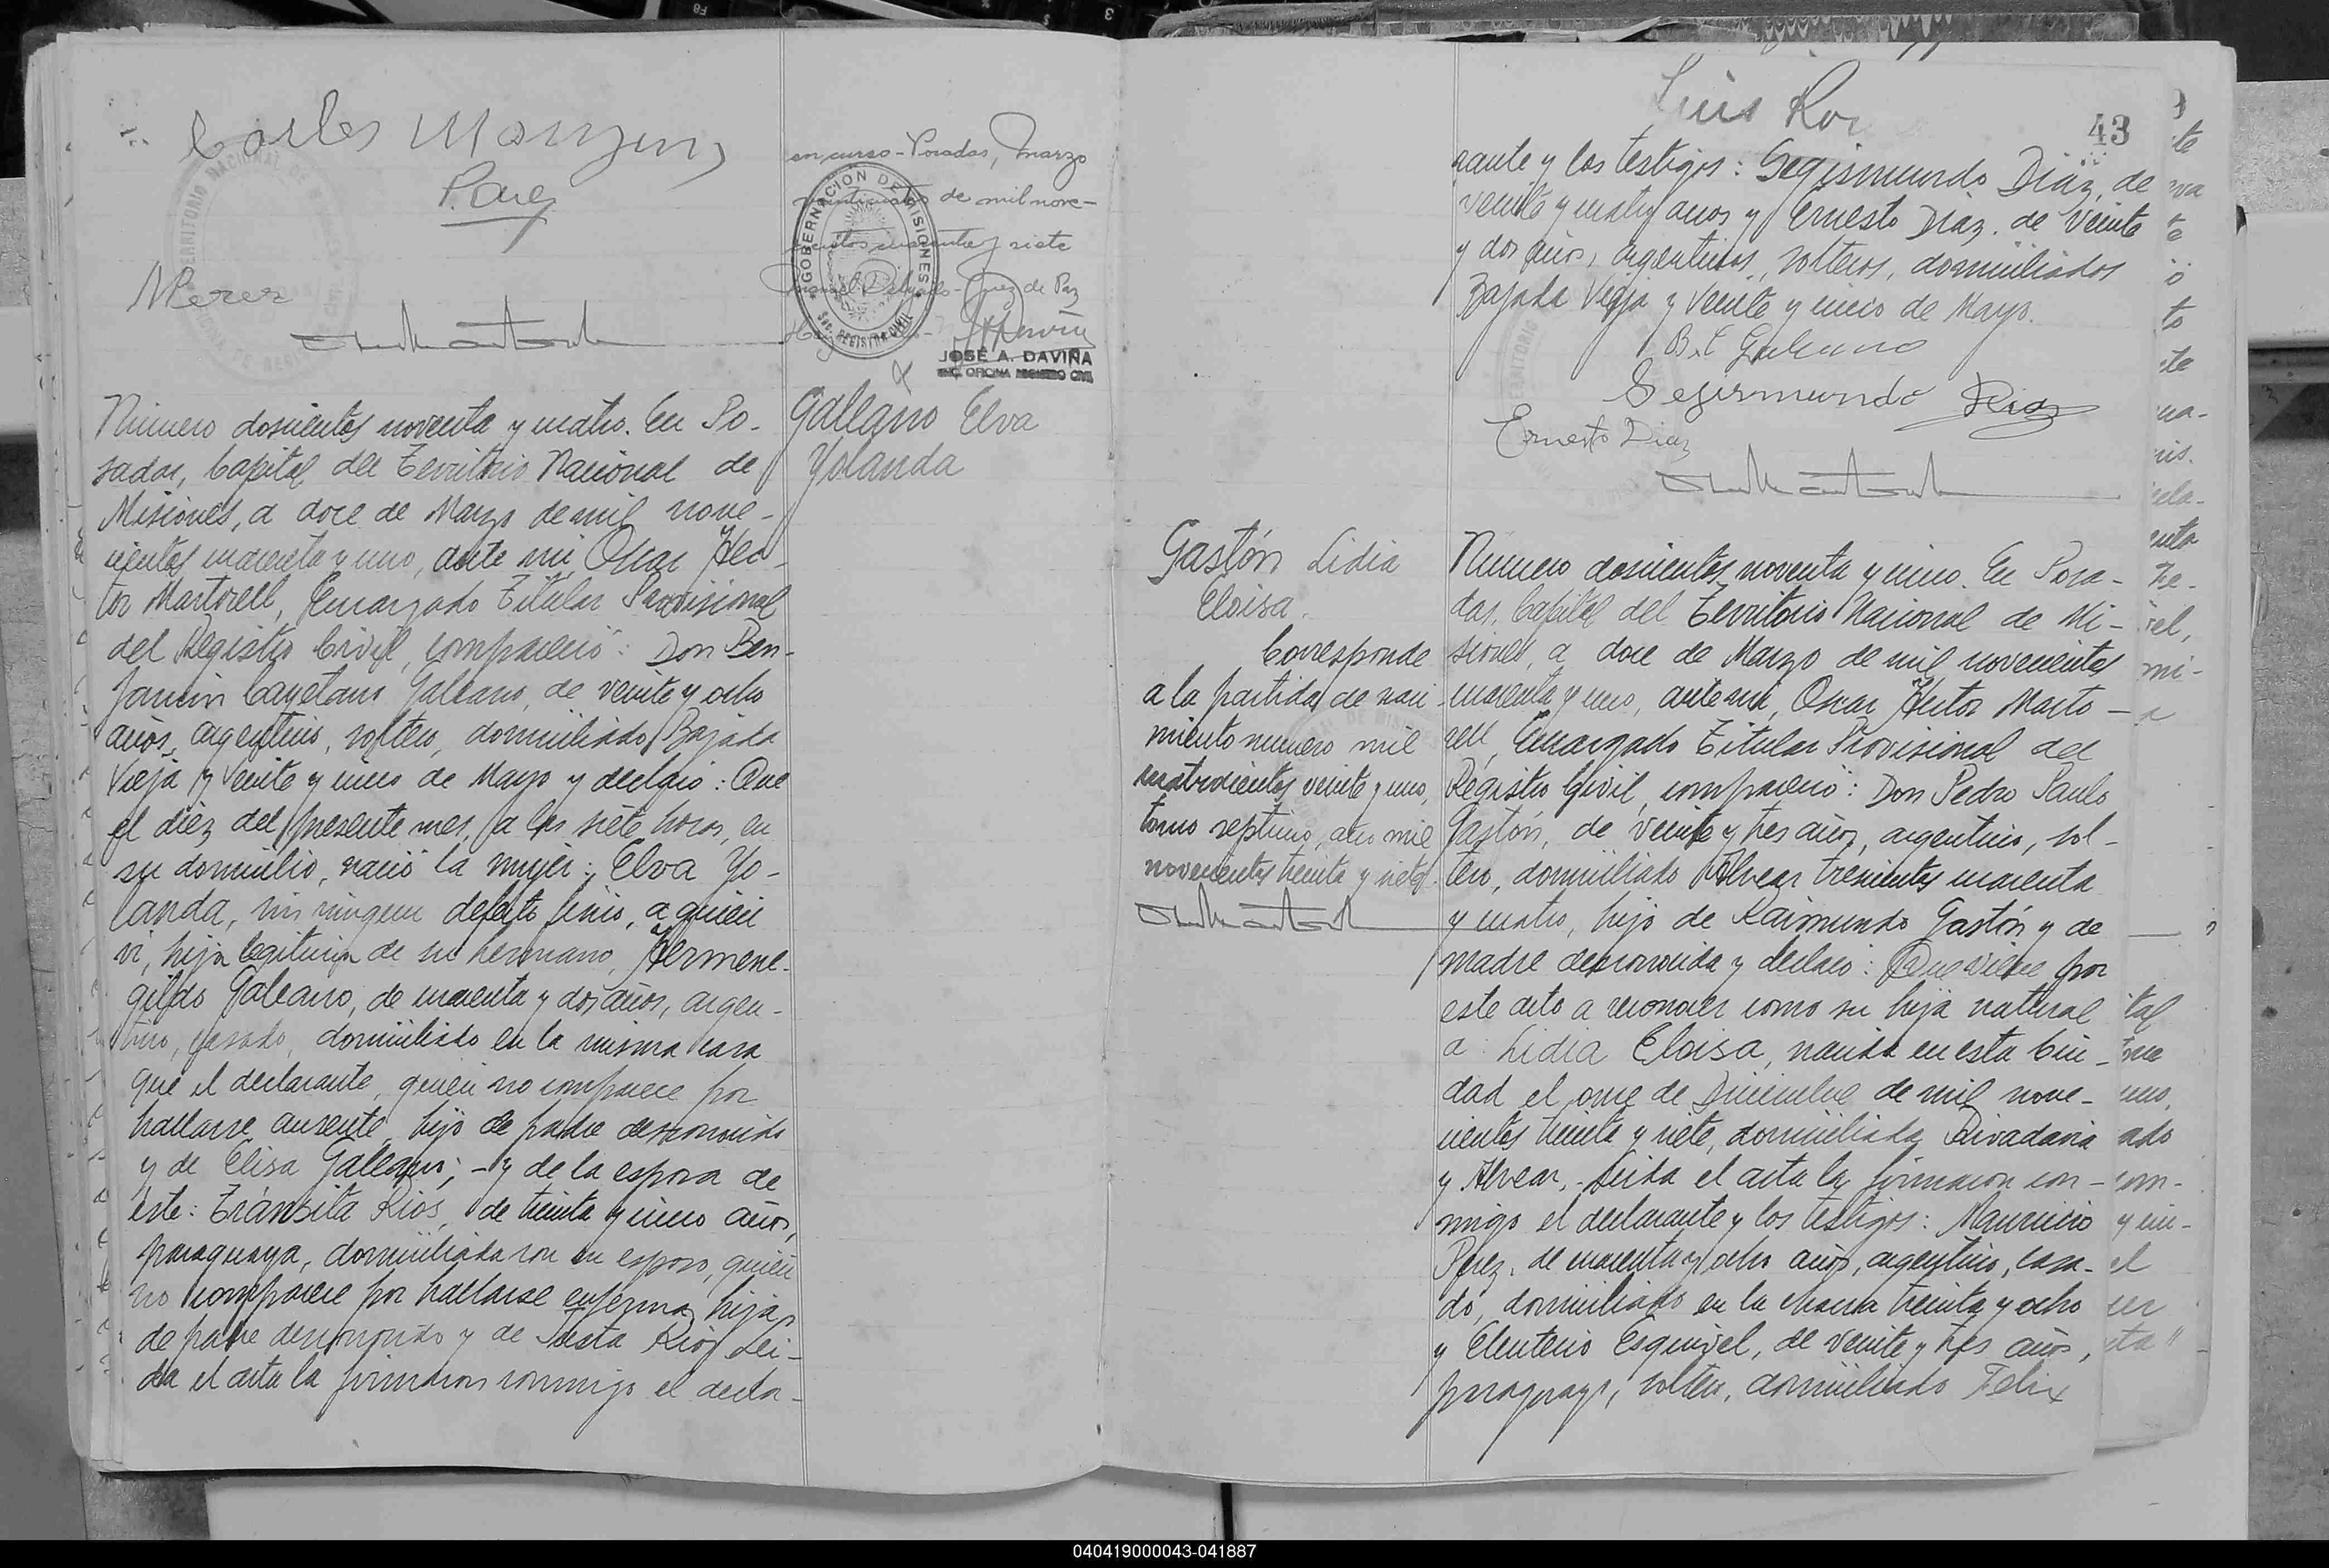 Carlos
Perez
en curso - Posadas, marzo
de mil nove-
cientos cuarenta y siete
Juez de Paz
GOBERNACION DE MISIONES
Sec. REGISTRO CIVIL
JOSÉ A. DAVIÑA
ENC. OFICINA REGISTRO CIVIL
Galeano Elva
Yolanda
Número doscientos noventa y cuatro. En Po-
sadas, Capital del Territorio Nacional de
Misiones, a doce de Marzo de mil nove-
cientos cuarenta y uno, ante mi, Oscar Hec-
tor Martorell, Encargado Titular Provisional
del Registro Civil, compareció: Don Ben-
jamin Cayetano Galeano, de veinte y ocho
años, argentino, soltero, domiciliado Bajada
Vieja y Veinte y cinco de Mayo y declaró: Que
el diez del presente mes, a las siete horas, en
su domicilio, nació la mujer: Elva Yo-
landa, sin ningun defecto fisico, a quien
vi, hija legitima de su hermano, Hermene-
gildo Galeano, de cuarenta y dos años, argen-
tino, casado, domiciliado en la misma casa
que el declarante, quien no comparece por
hallarse ausente, hijo de padre desconocido
y de Elisa Galeano; - y de la esposa de
éste: Tránsita Rios, de treinta y cinco años,
paraguaya, domiciliada con su esposo, quien
no comparece por hallarse enferma, hija
de padre desconocido y de Rios. Lei-
da el acta la firmaron conmigo el decla-
Luis
43
rante y los testigos: Segismundo Diaz, de
veinte y cuatro años y Ernesto Diaz, de veinte
y dos años, argentinos, solteros, domiciliados
Bajada Vieja y Veinte y cinco de Mayo.
B. C. Galeano
Segismundo Diaz
Ernesto Diaz
Gastón Lidia
Eloisa.
Corresponde
a la partida de naci
miento numero mil
cuatrocientos veinte y uno,
tomo septimo, año mil
novecientos treinta y siete.
Número doscientos noventa y cinco. En Posa-
das, Capital del Territorio Nacional de Mi-
siones, a doce de Marzo de mil novecientos
cuarenta y uno, ante mi, Oscar Hector Marto-
rell, Encargado Titular Provisional del
Registro Civil, compareció: Don Pedro Paulo
Gastón, de veinte y tres años, argentino, sol-
tero, domiciliado Alvear trescientos cuarenta
y cuatro, hijo de Raimundo Gastón y de
madre desconocida y declaró: Que viene por
este acto a reconocer como su hija natural
a: Lidia Eloisa, nacida en esta Ciu-
dad el once de Diciembre de mil nove-
cientos treinta y siete, domiciliada Rivadavia
y Alvear. - Leida el acta la firmaron con-
migo el declarante y los testigos: Mauricio
Perez, de cuarenta y ocho años, argentino, casa-
do, domiciliado en la chacra treinta y ocho
y Eleuterio Esquivel, de veinte y tres años,
paraguayo, soltero, domiciliado Felix
040419000043-041887